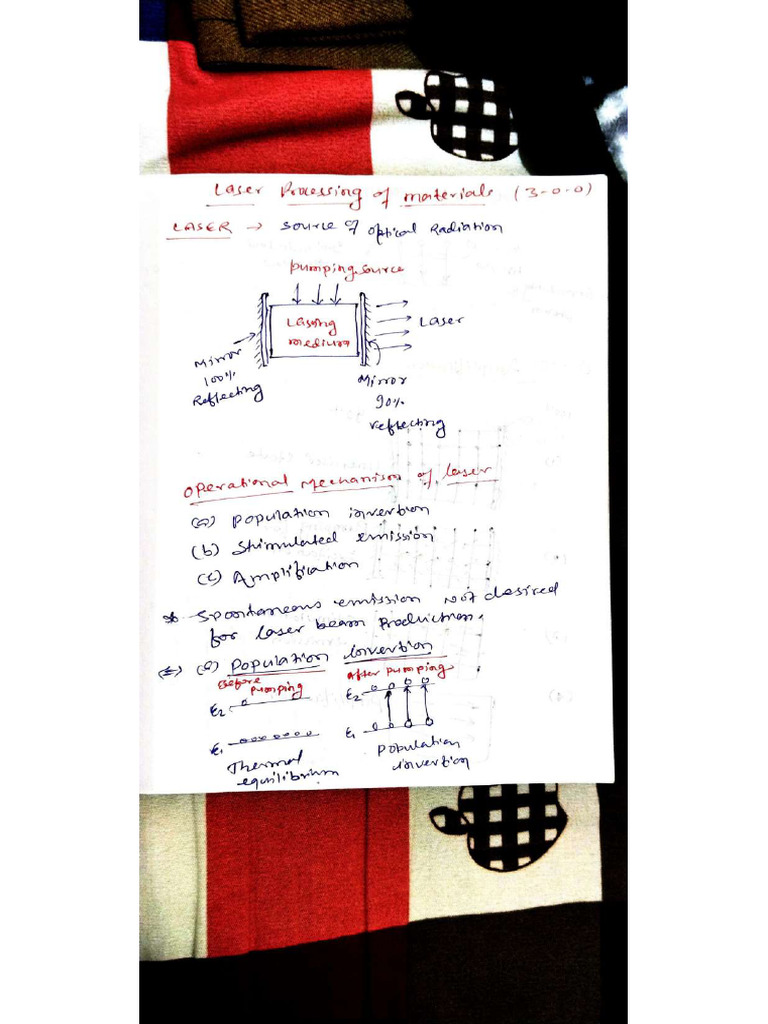 Laser Processing of materials (3-0-0)
LASER → source of optical Radiation
pumping source
Lasing
medium
Laser
Mirror
100%
Reflecting
Mirror
90%
reflecting
operational Mechanism of laser
(a) population invertion
(b) stimulated emission
(c) Amplification
* Spontaneous emission not desired
for laser beam Production.
(a) population invertion
Before
pumping
After pumping
E2
E1
Thermal
equilibrium
E2
E1
population
invertion